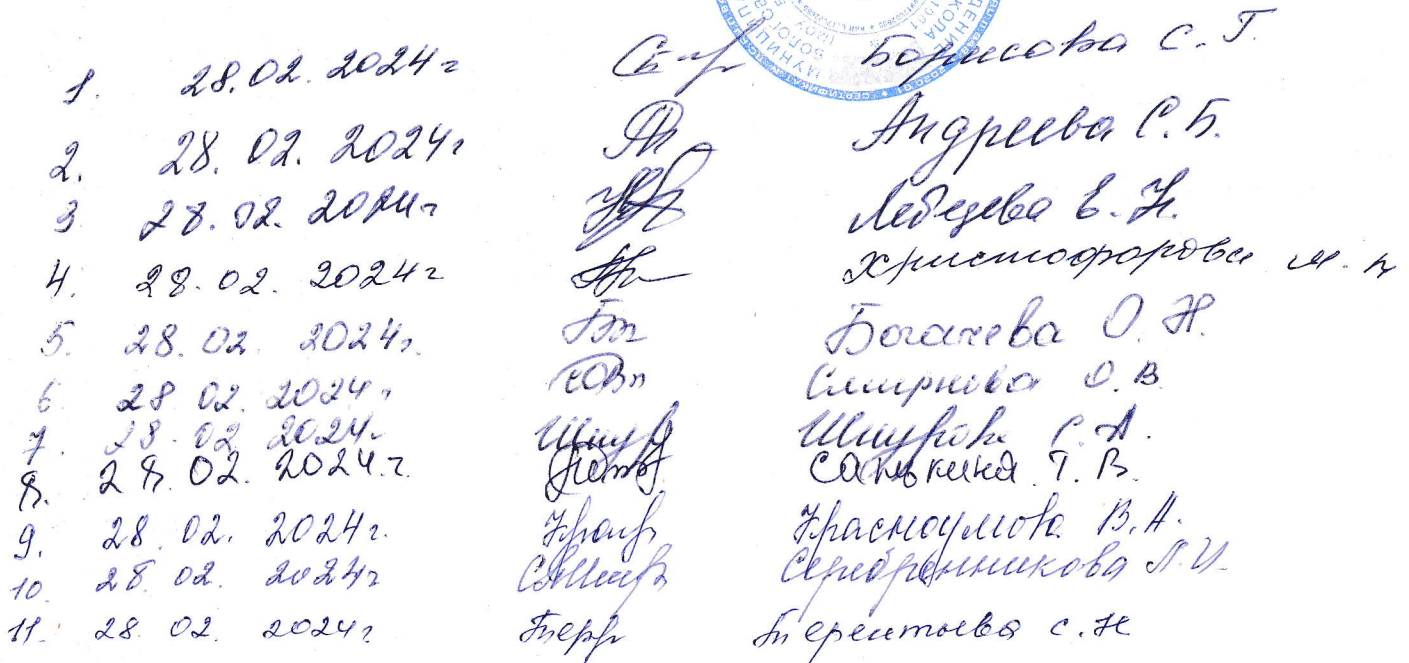 МУНИЦИП
БОЛОГОВ
ДЕНИЕ
КОЛА
СЕРТИФИКАТ
1. 28.02.2024г Борисова С.Г.
2. 28.02.2024г Андреева С.Б.
3 28.02.2024г Лебедева Е.Н.
4. 28.02.2024г Христофорова М.
5. 28.02.2024г. Богачева О.Н.
6. 28.02.2024г Смирнова О.В
7. 28.02.2024г Шнурова С.А.
8. 28.02.2024.г. Санькина Т.В.
9. 28.02.2024г. Красноумова В.А.
10. 28.02.2024г Серебренникова Л.И.
11. 28.02.2024г Терентьева С.Н